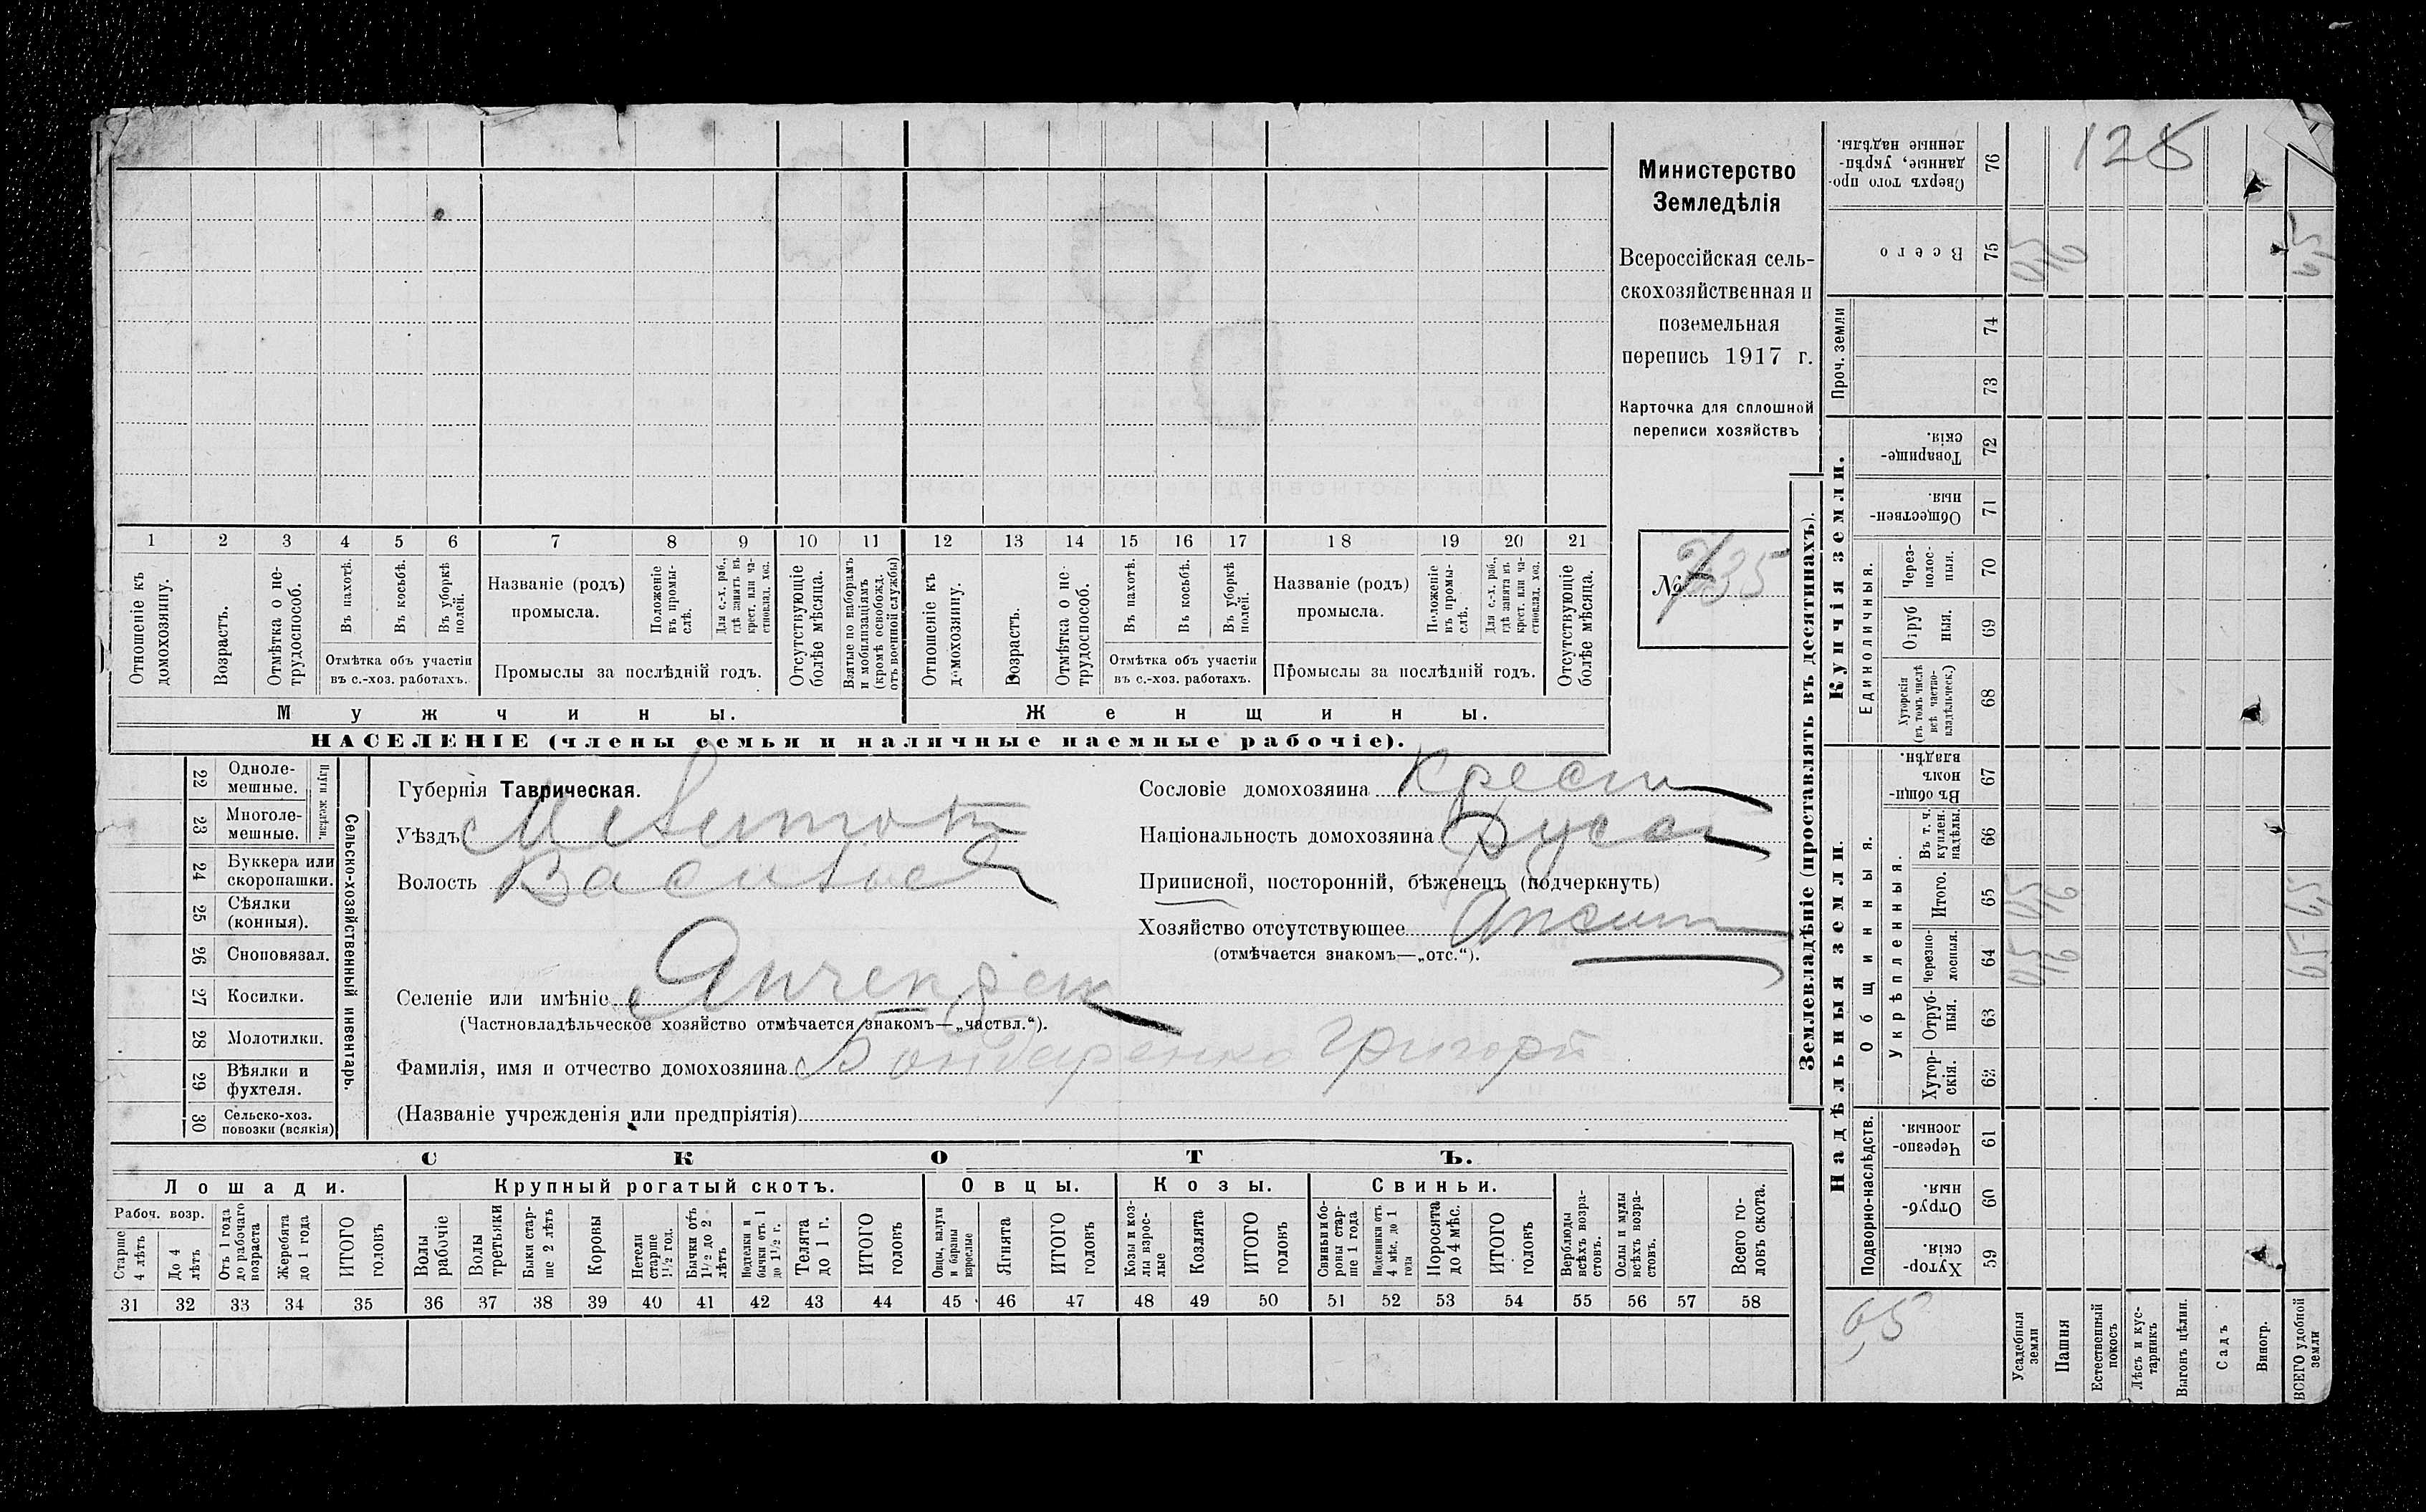 Министерство
Земледѣлія
Всероссійская сель-
скохозяйственная и
поземельная
перепись 1917 г.
Карточка для сплошной
переписи хозяйствъ
№ 735
128
1 2 3 4 5 6 7 8 9 10 11 12 13 14 15 16 17 18 19 20 21
Отношеніе къ домохозяину.
Возрастъ.
Отмѣтка о не-трудоспособ.
Въ пахотѣ.
Въ косьбѣ.
Въ уборкѣ полей.
Отмѣтка объ участіи
въ с.-хоз. работахъ.
Названіе (родъ)
промысла.
Положеніе въ промы-слѣ.
Для с.-х. раб., гдѣ занятъ въ крест. или ча-стновлад. хоз.
Промыслы за послѣдній годъ.
Отсутствующіе болѣе мѣсяца.
Взятые по наборамъ и мобилизаціямъ (кромѣ освобожд. отъ военной службы)
Отношеніе къ домохозяину.
Возрастъ.
Отмѣтка о не-трудоспособ.
Въ пахотѣ.
Въ косьбѣ.
Въ уборкѣ полей.
Отмѣтка объ участіи
въ с.-хоз. работахъ.
Названіе (родъ)
промысла.
Положеніе въ промы-слѣ.
Для с.-х. раб., гдѣ занятъ въ крест. или ча-стновлад. хоз.
Промыслы за послѣдній годъ.
Отсутствующіе болѣе мѣсяца.
Мужчины.
Женщины.
НАСЕЛЕНІЕ (члены семьи и наличные наемные рабочіе).
Сельско-хозяйственный инвентарь.
Плуги желѣзн.
22 Одноле-мешные.
23 Многоле-мешные.
24 Буккера или скоропашки.
25 Сѣялки (конныя).
26 Сноповязал.
27 Косилки.
28 Молотилки.
29 Вѣялки и фухтеля.
30 Сельско-хоз. повозки (всякія)
Губернія Таврическая.
Уѣздъ Мелитоп
Волость Васильев
Селеніе или имѣніе Янчекрак
(Частновладѣльческое хозяйство отмѣчается знакомъ—„частвл.“).
Фамилія, имя и отчество домохозяина Бондаренко Григорій
(Названіе учрежденія или предпріятія)
Сословіе домохозяина крест
Національность домохозяина Русс
Приписной, посторонній, бѣженецъ (подчеркнуть)
Хозяйство отсутствующее
(отмѣчается знакомъ—„отс.“).
СКОТЪ.
Лошади.
Крупный рогатый скотъ.
Овцы.
Козы.
Свиньи.
Рабоч. возр.
Старше 4 лѣтъ
До 4 лѣтъ
Отъ 1 года до рабочаго возраста
Жеребята до 1 года
ИТОГО головъ
Волы рабочіе
Волы третьяки
Быки стар-ше 2 лѣтъ
Коровы
Нетели старше 1½ год.
Бычки отъ 1½ до 2 лѣтъ
Подтелки и бычки отъ 1 до 1½ г.
Телята до 1 г.
ИТОГО головъ
Овцы, валухи и бараны взрослые
Ягнята
ИТОГО головъ
Козы и коз-лы взрос-лые
Козлята
ИТОГО головъ
Свиньи и бо-ровы стар-ше 1 года
Подсвинки отъ 4 мѣс. до 1 года
Поросята до 4 мѣс.
ИТОГО головъ
Верблюды всѣхъ возра-стовъ.
Ослы и мулы всѣхъ возра-стовъ.
Всего го-ловъ скота.
31 32 33 34 35 36 37 38 39 40 41 42 43 44 45 46 47 48 49 50 51 52 53 54 55 56 57 58
Землевладѣніе (проставлять въ десятинахъ).
Купчія земли.
Надѣльныя земли.
Сверхъ того про-данные, укрѣп-ленные надѣлы. 76
Всего 75
Проч. земли
74
73
Товарище-скія. 72
Обществен-ныя. 71
Единоличныя.
Через-полос-ныя. 70
Отруб ныя. 69
Хуторскія (въ томъ числѣ всѣ частно-владѣльческ.) 68
Общинныя.
Въ общи-номъ владѣн. 67
Укрѣпленныя.
Въ т. ч. куплен. надѣлы. 66
Итого. 65
Черезпо-лосныя. 64
Отруб-ныя. 63
Хутор-скія. 62
Подворно-наслѣдств.
Черезпо-лосныя. 61
Отруб-ныя. 60
Хутор-скія. 59
65
Усадебныя земли
Пашня
Естественный покосъ
Лѣсъ и кус-тарникъ
Выгонъ цѣлин.
Садъ
Виногр.
ВСЕГО удобной земли